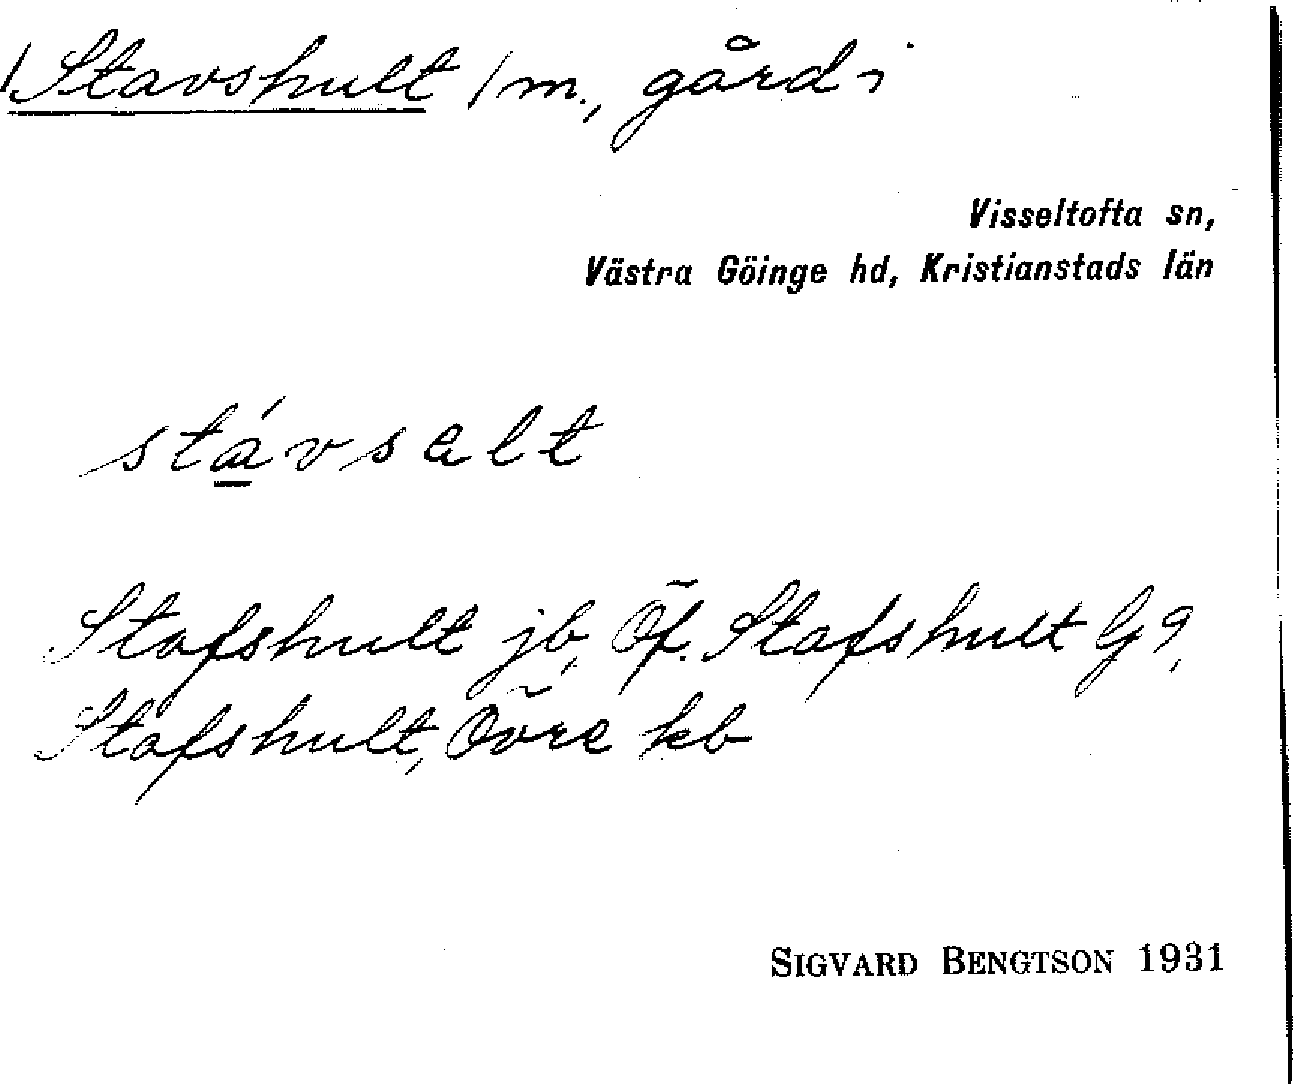 /Stavshult/ m., gård i
Visseltofta sn,
Västra Göinge hd, Kristianstads län
stávsalt
Stafshult jb, Öf. Stafshult G9,
Stafshult, Övre kb
SIGVARD BENGTSON 1931